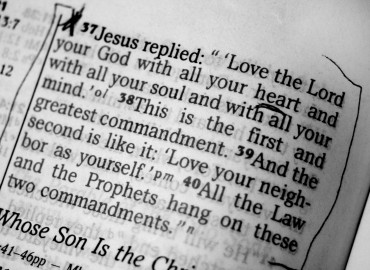 37Jesus replied: " 'Love the Lord
your God with all your heart and
with all your soul and with all your
mind.'ol 38This is the first and
greatest commandment. 39And the
second is like it: 'Love your neigh-
bor as yourself.'pm 40All the Law
and the Prophets hang on these
two commandments."n
Whose Son Is the Chri
41–46pp
3:7
12